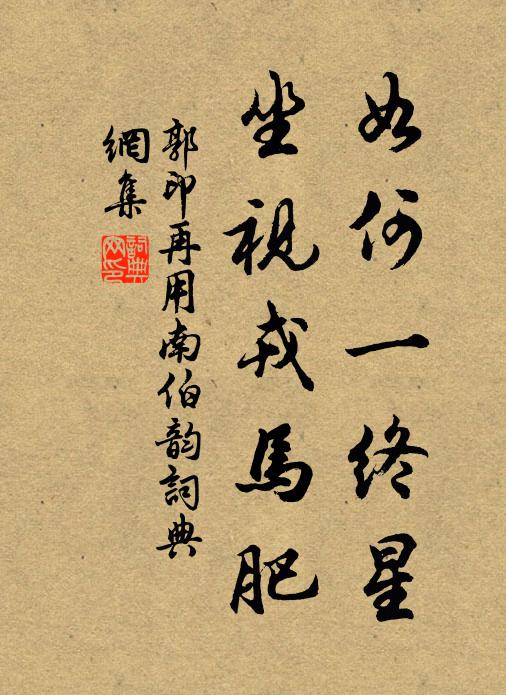 如何一終星
坐視戎馬肥
郭印再用南伯韵詞典
網集
詞典
网印